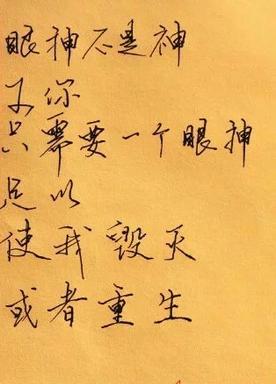 眼神不是神
又你
只需要一个眼神
足以
使我毁灭
或者重生